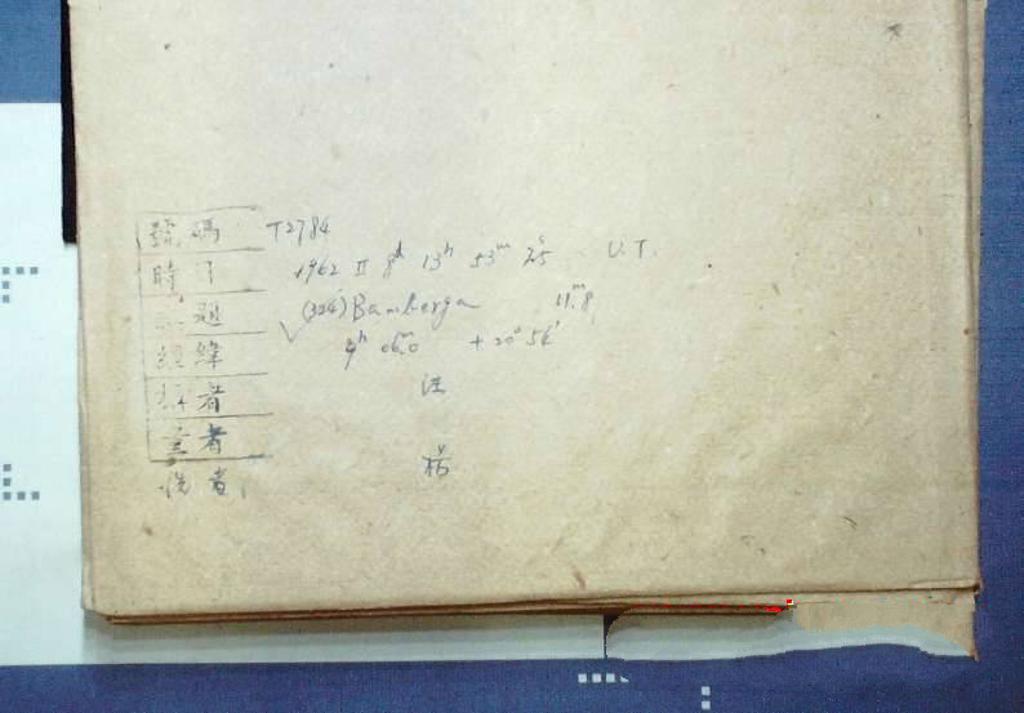 號碼 T2784
時 1962 II 8d 13h 53m 25s U.T.
題 (324) Bamberga 11m.8
緯 9h 06m.0 +20° 56'
者 洪
者
者